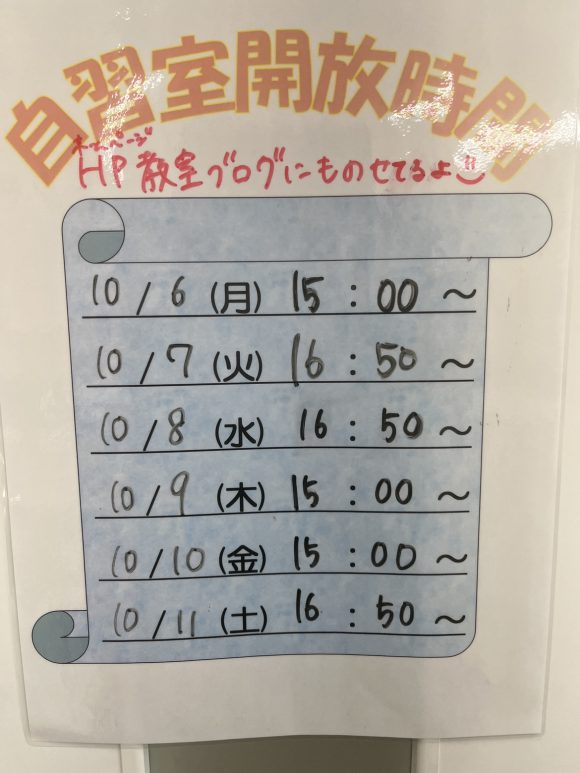 自習室開放時間
ホームページ
HP 教室ブログにものせてるよ
10/6 (月) 15:00~
10/7 (火) 16:50~
10/8 (水) 16:50~
10/9 (木) 15:00~
10/10 (金) 15:00~
10/11 (土) 16:50~